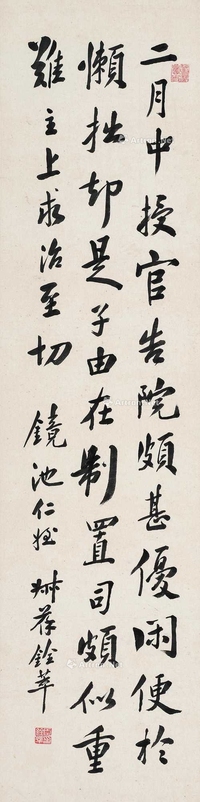 二月中授官告院頗甚優閑便於
懶拙却是子由在制置司頗似重
難主上求治至切
鏡池仁姪 叔葆銓萃